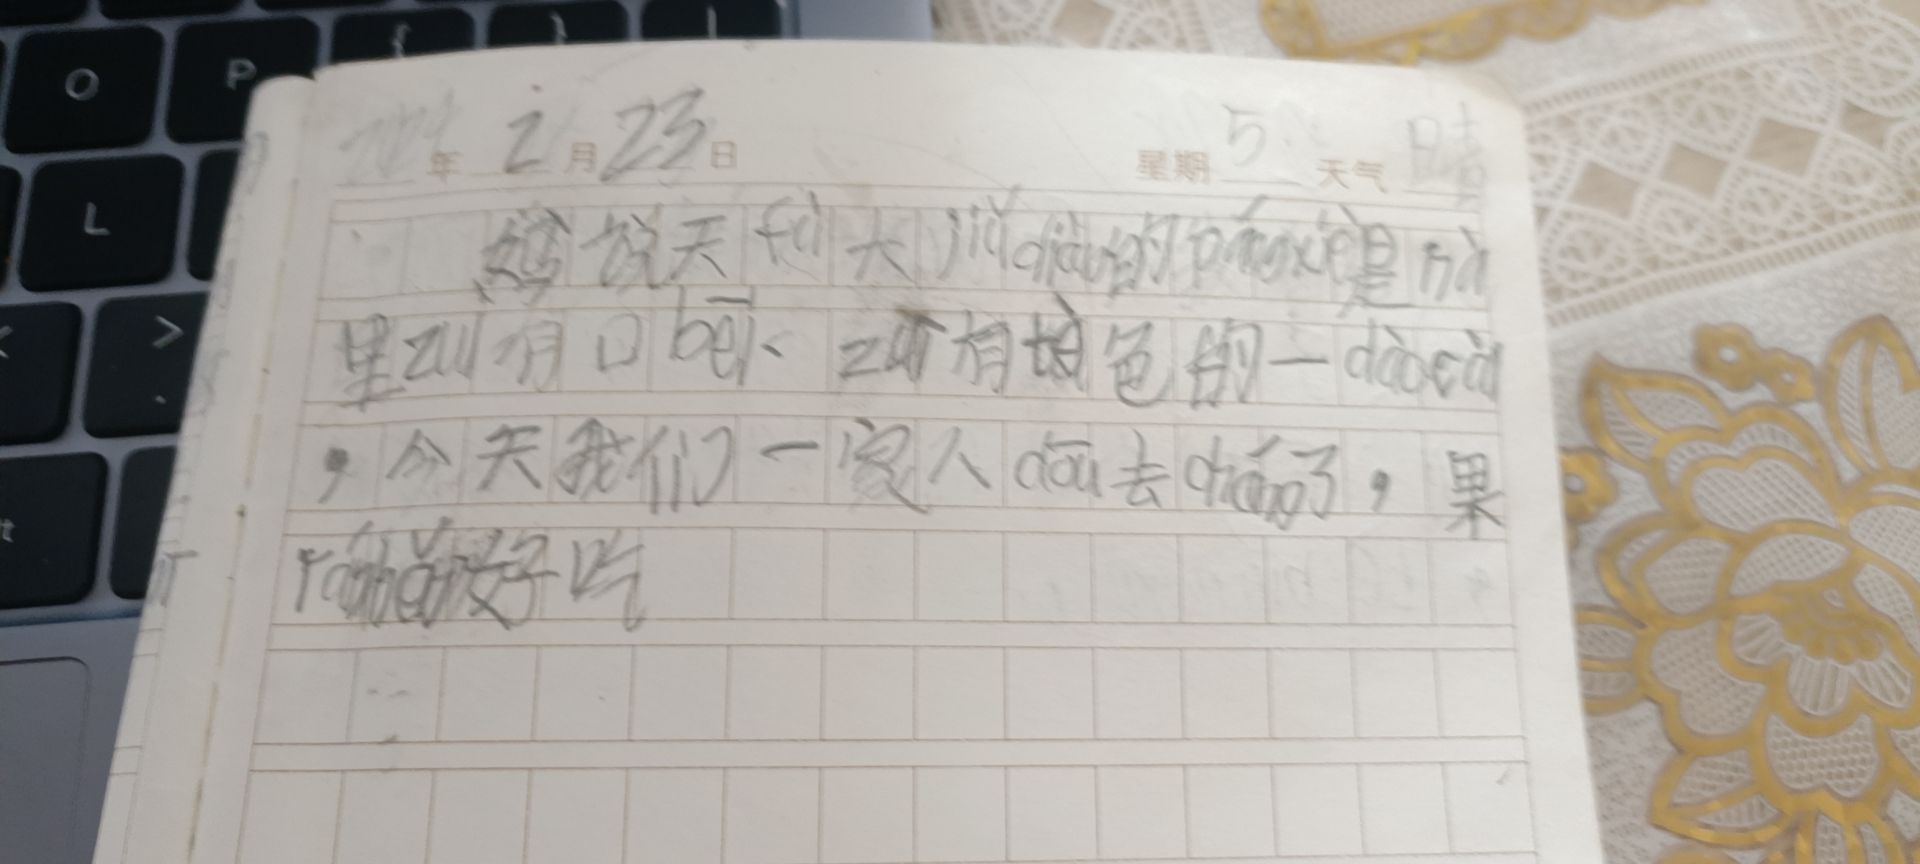 O P
年 2 月 23 日 星期 5 天气 晴
L 妈说天 fù 大 jiǔ diàn 的 páng xiè 是 nà
> 里 zuì 有口 bēi、zuì 有 特色的一 dào cài
，今天我们一家人 dōu 去 cháng 了，果
rán hěn 好吃